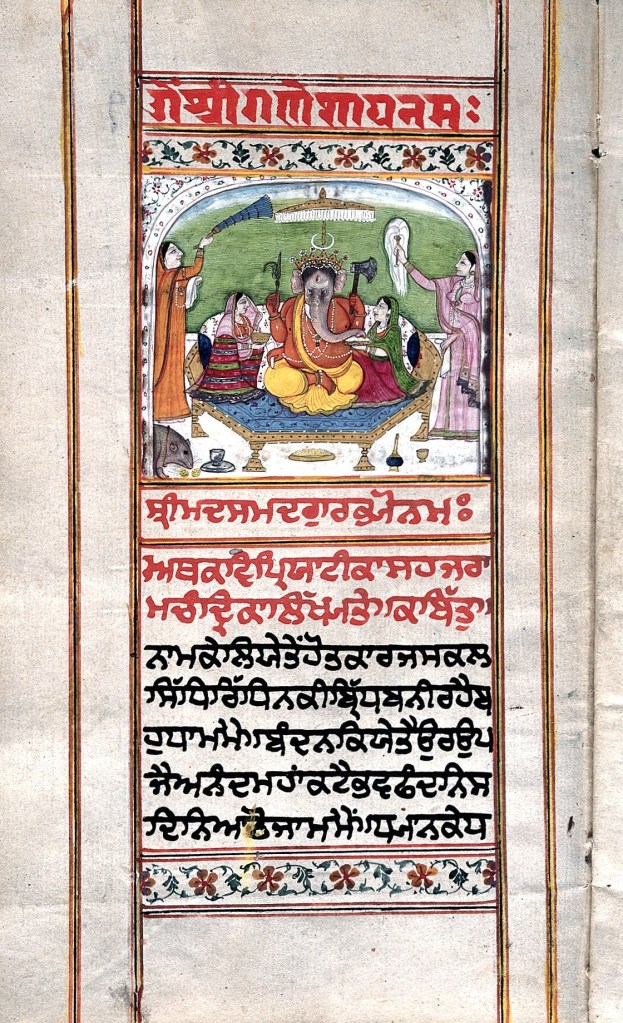 ਓਂਸ਼੍ਰੀਗਣੇਸ਼ਾਯਨਮਃ
ਸ੍ਰੀਮਦਸਮਦਗੁਰਭ੍ਯੋਨਮਃ
ਅਥਕਵਿਪ੍ਰਿਯਾਟੀਕਾਸਹਜਰਾ
ਮਚੰਦ੍ਰਿਕਾਲਿੱਖ੍ਯਤੇ॥ਕਬਿੱਤੁ॥
ਨਾਮਕੇਲਿਯੇਤੇਂਹੋਤਕਾਰਜਸਕਲ
ਸਿੱਧਿਰਿੱਧਿਨਕੀਬ੍ਰਿੱਧਬਨੀਰਹੈਬ
ਹੁਧਾਮਮੇ॥ਬੰਦਨਕਿਯੇਤੈਉਰਉਪ
ਜੈਅਨੰਦਮਹਾਂਕਟੈਭਵਫੰਦਨਿਸ
ਦਿਨਆਠੋਜਾਮਮੈਂ॥ਧ੍ਯਾਨਕੇਧ